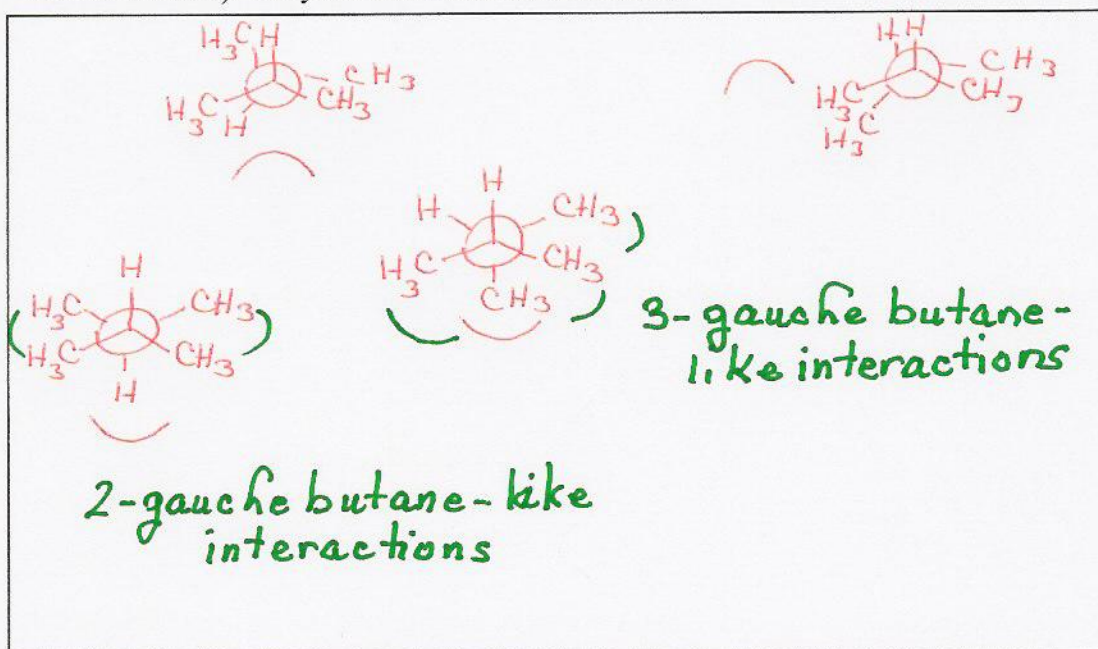 H₃C H
CH₃
H₃C CH₃
H
H H
CH₃
H₃C CH₃
H₃C
H
H CH₃
H₃C CH₃
CH₃
H
H₃C CH₃
H₃C CH₃
H
3-gauche butane-
like interactions
2-gauche butane-like
interactions